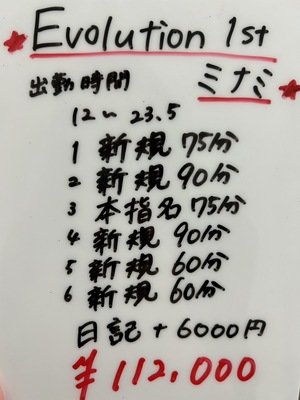 Evolution 1st
ミナミ
出勤時間
12〜23.5
1 新規 75分
2 新規 90分
3 本指名 75分
4 新規 90分
5 新規 60分
6 新規 60分
日記 + 6000円
¥112,000